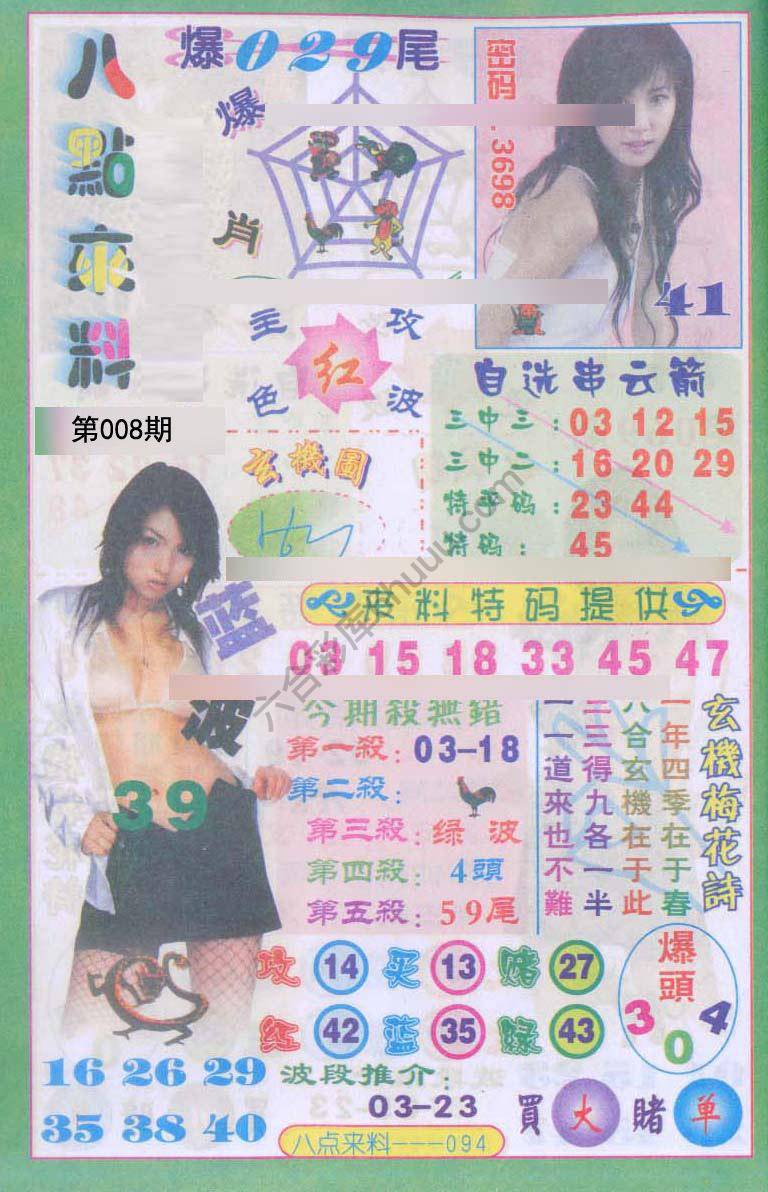 八點來料
第008期
爆029尾
爆
肖
密码:3698
41
主攻
红
色波
玄機圖
自选串云箭
三中三:03 12 15
三中二:16 20 29
特平码:23 44
特码:45
来料特码提供
03 15 18 33 45 47
蓝波
39
今期殺無錯
第一殺:03-18
第二殺:
第三殺:绿波
第四殺:4頭
第五殺:59尾
玄機梅花詩
一年四季在于春
八合玄機在于此
三三得九各一半
一一道來也不難
攻 14 买 13 赌 27
红 42 蓝 35 绿 43
爆頭
3 0 4
16 26 29
35 38 40
波段推介:
03-23
買大賭单
八点来料---094
六合彩库
.com